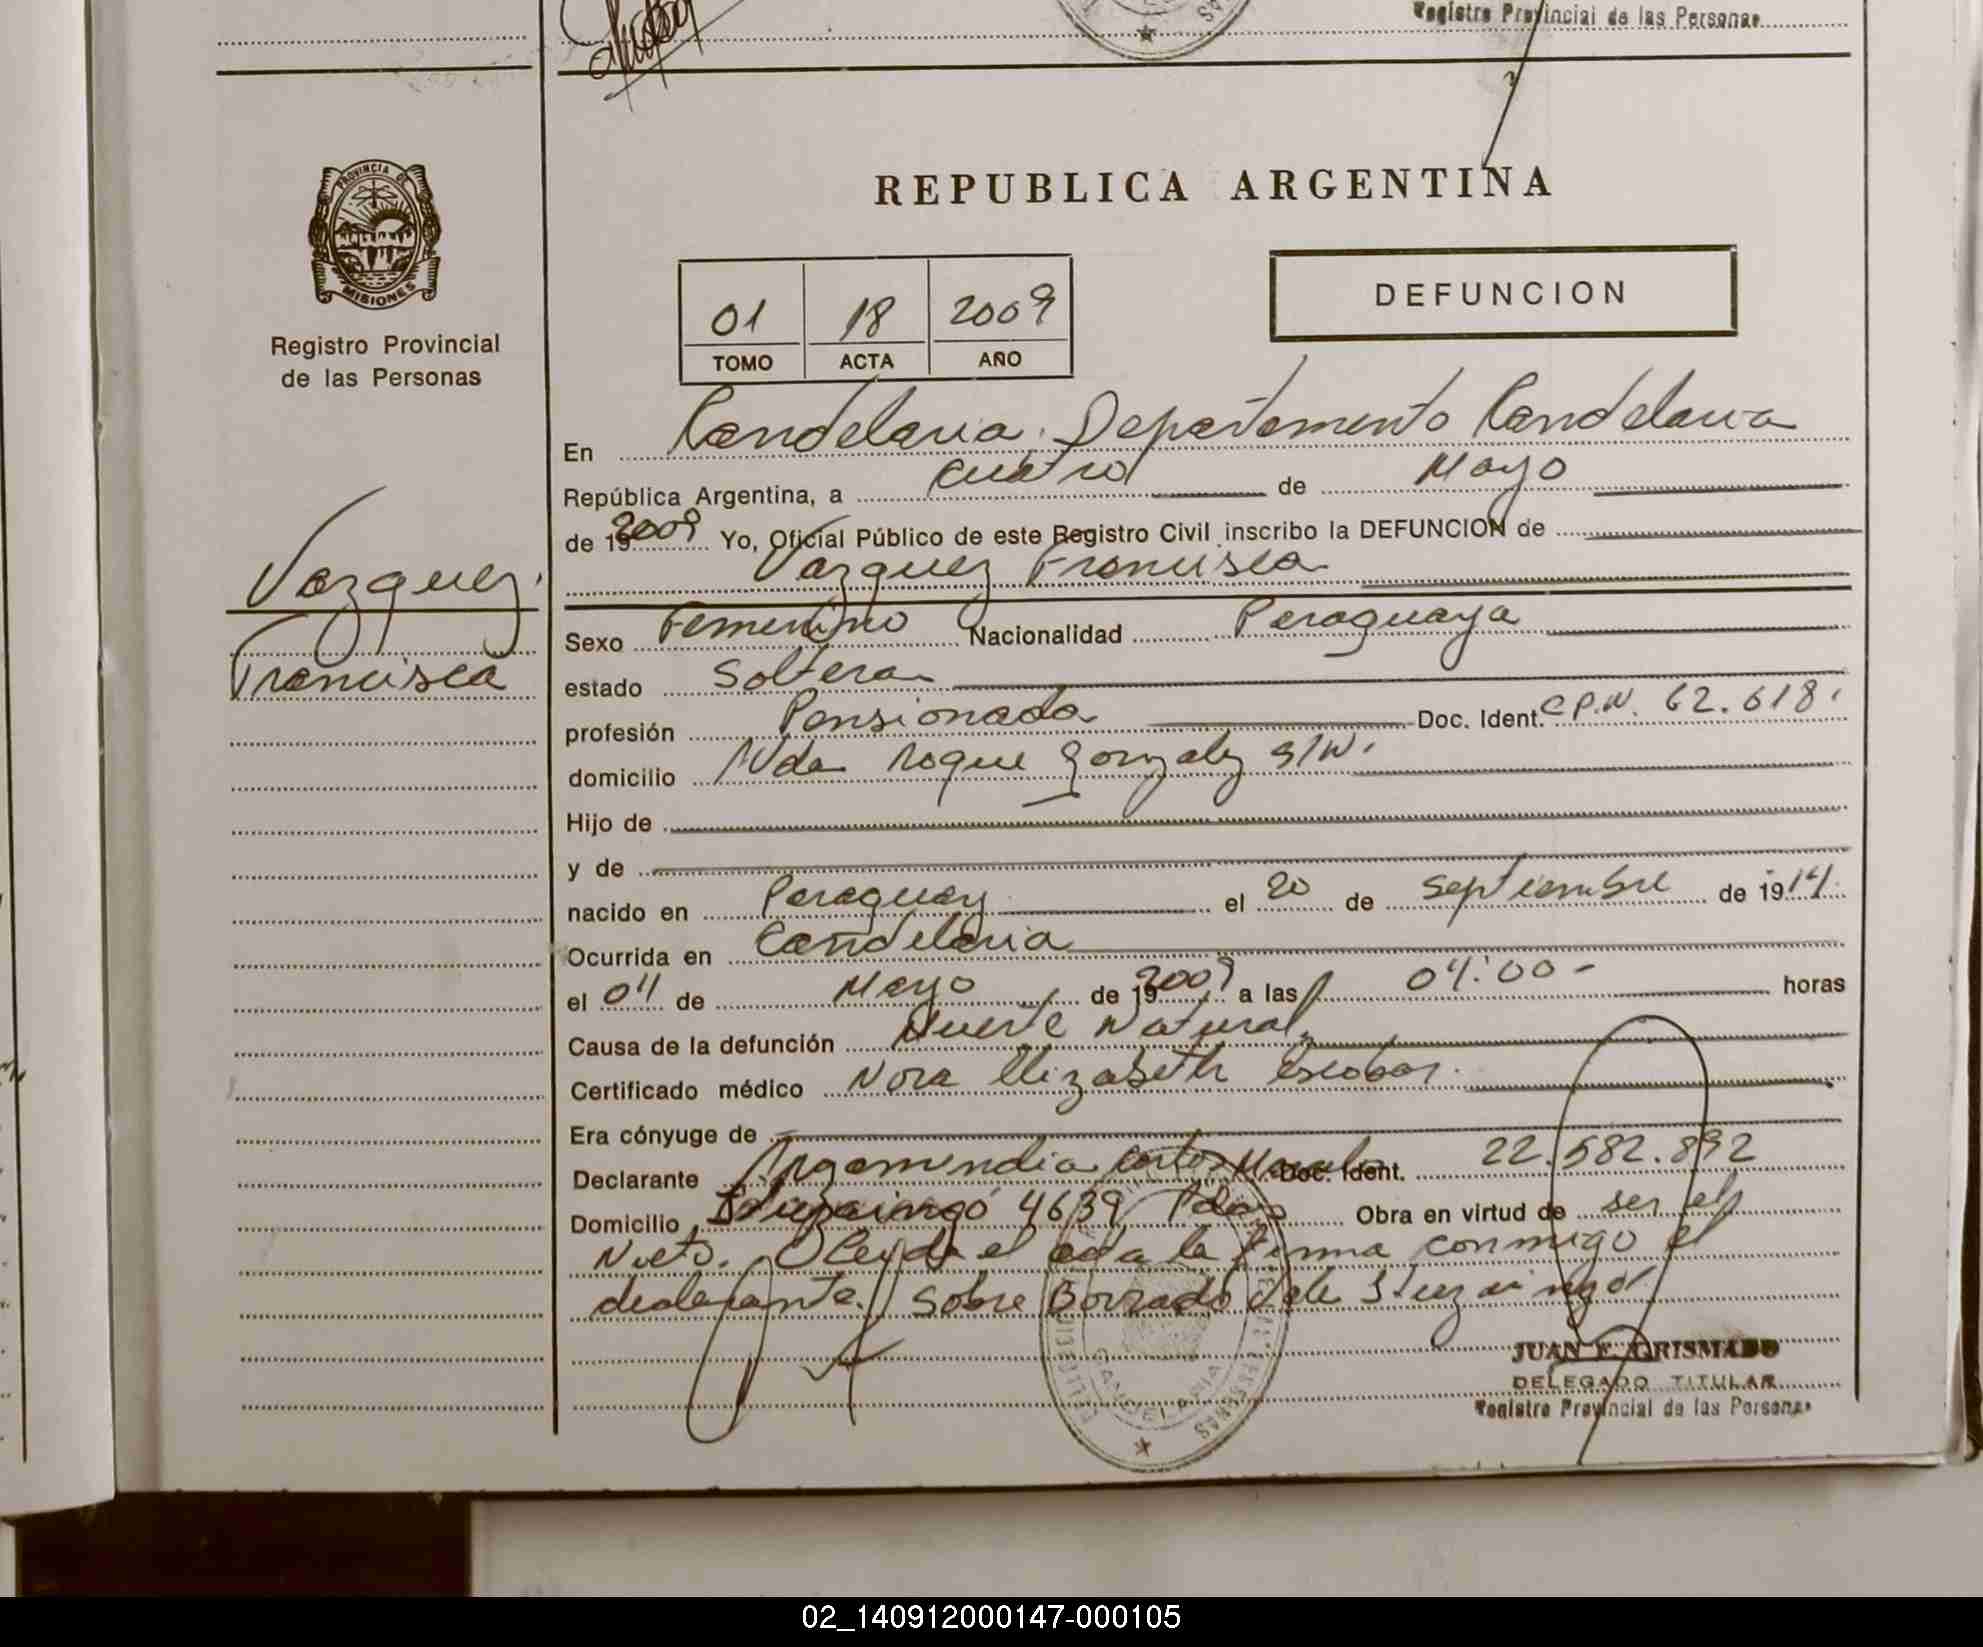 Registro Provincial de las Personas
REPUBLICA ARGENTINA
PROVINCIA DE
MISIONES
Registro Provincial
de las Personas
01 18 2009
TOMO ACTA AÑO
DEFUNCION
Vazquez
Francisca
En Candelaria, Departamento Candelaria
República Argentina, a cuatro de Mayo
de 19 2009 Yo, Oficial Público de este Registro Civil inscribo la DEFUNCION de
Vazquez Francisca
Sexo Femenino Nacionalidad Paraguaya
estado Soltera
profesión Pensionada Doc. Ident. C.P.N. 62.618.
domicilio Avda Roque Gonzalez S/N.
Hijo de
y de
nacido en Paraguay el 20 de Septiembre de 1914.
Ocurrida en Candelaria
el 04 de Mayo de 19 2009 a las 04:00- horas
Causa de la defunción Muerte Natural
Certificado médico Nora Elizabeth Escobar.
Era cónyuge de
Declarante Carlos Doc. Ident. 22.582.892
Domicilio Ituzaingó 4639 Pdas Obra en virtud de ser el
Nieto. Leida el acta la firma conmigo el
declarante. Sobre Borrado Vale Ituzaingó
CANDELARIA
JUAN F. GRISMADO
DELEGADO TITULAR
Registro Provincial de las Personas
02_140912000147-000105